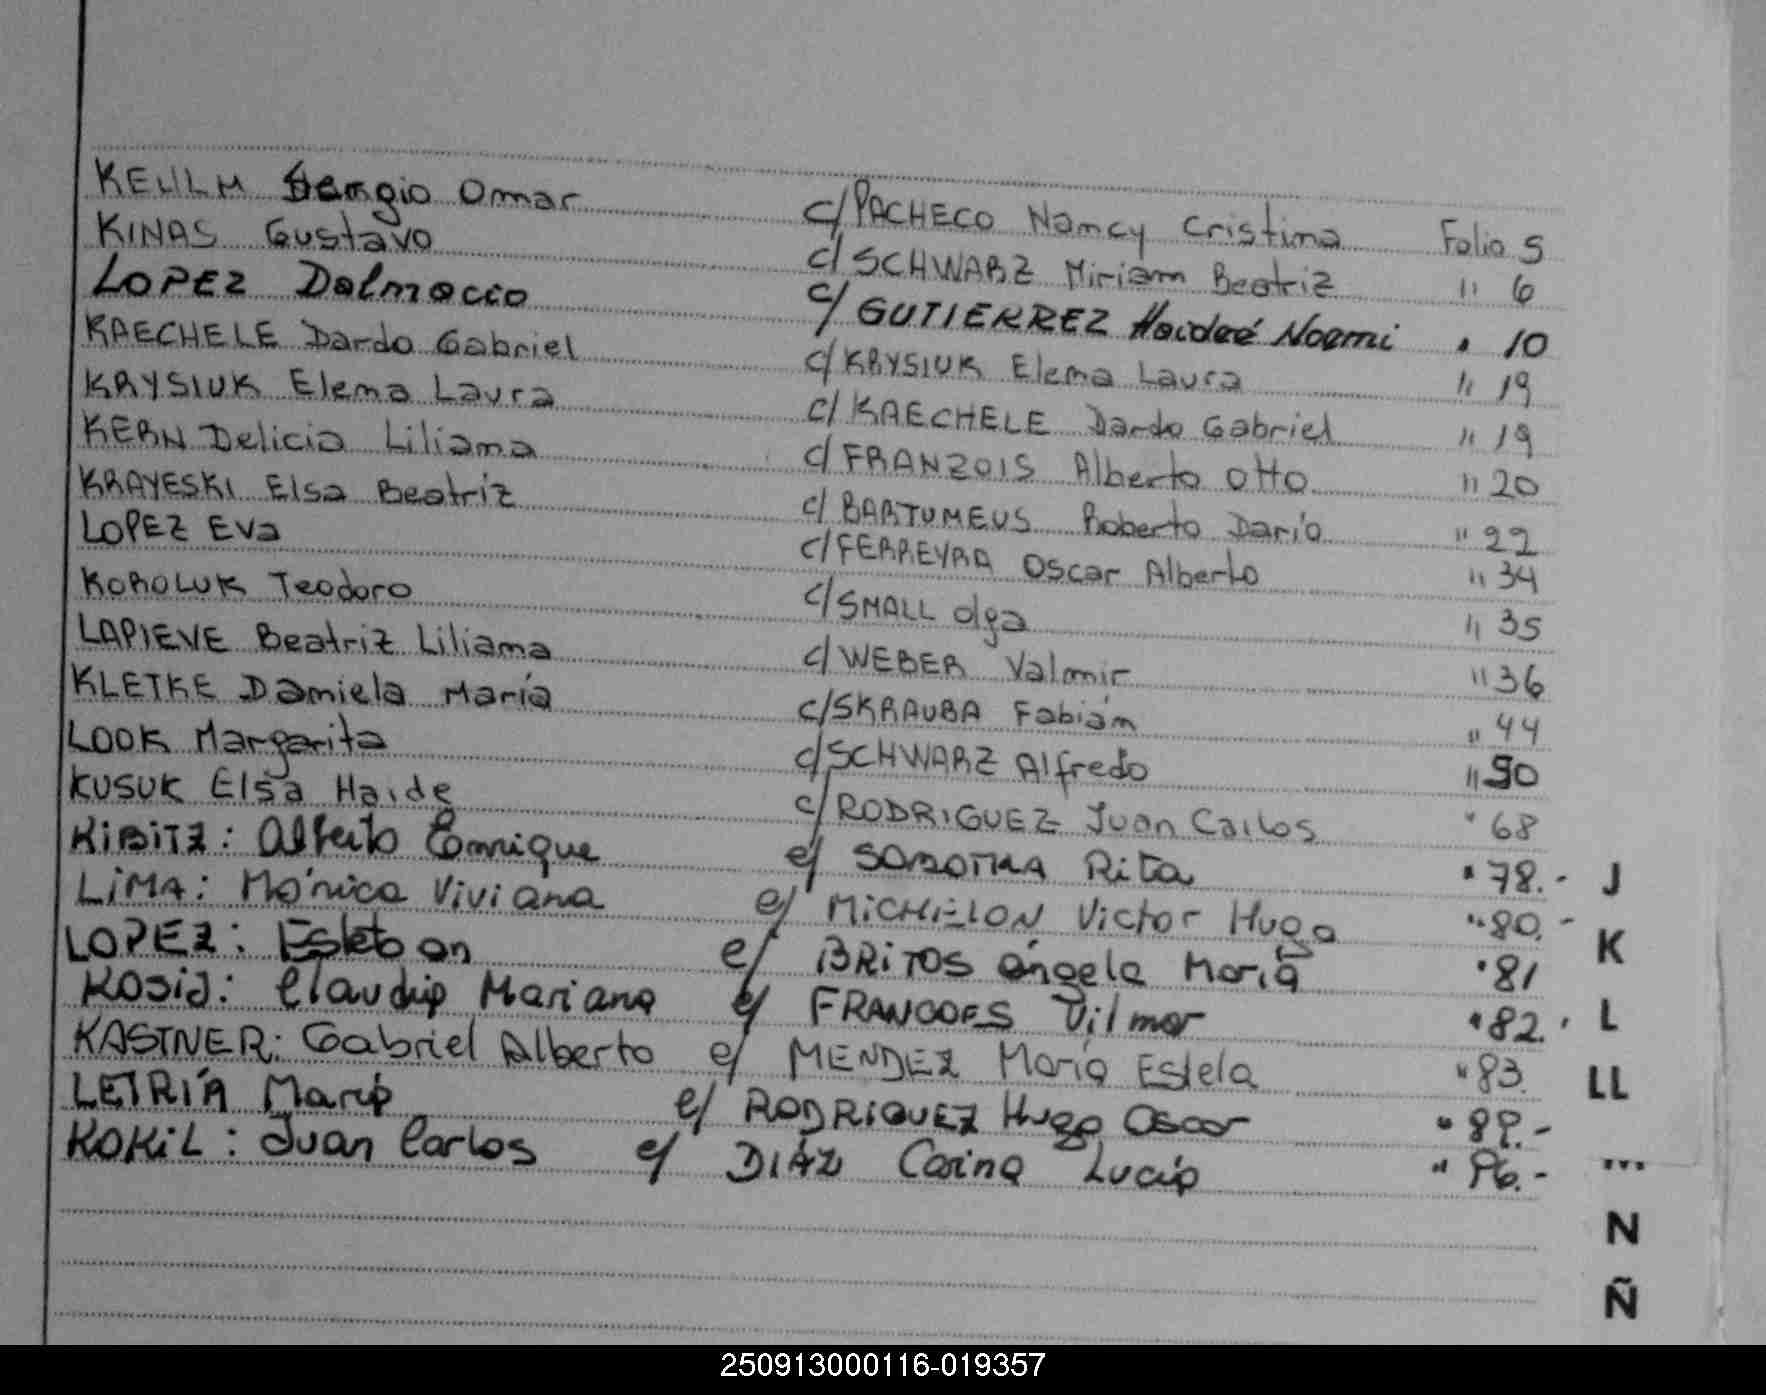 KEULM Sergio Omar c/PACHECO Nancy Cristina Folio 5
KINAS Gustavo c/SCHWARZ Miriam Beatriz " 6
LOPEZ Dalmacio c/ GUTIERREZ Haideé Noemi " 10
KAECHELE Dardo Gabriel c/KRYSIUK Elena Laura " 19
KRYSIUK Elena Laura c/KAECHELE Dardo Gabriel " 19
KERN Delicia Liliana c/FRANZOIS Alberto Otto " 20
KRAYESKI Elsa Beatriz c/BARTUMEUS Roberto Darío " 22
LOPEZ Eva c/FERREYRA Oscar Alberto " 34
KOROLUK Teodoro c/SMALL Olga " 35
LAPIEVE Beatriz Liliana c/WEBER Valmir " 36
KLETKE Daniela María c/SKRAUBA Fabián " 44
LOOK Margarita c/SCHWARZ Alfredo " 50
KUSUK Elsa Haide c/RODRIGUEZ Juan Carlos " 68
KIBITZ: Alberto Enrique c/ SOBOTKA Rita " 78.-
LIMA: Mónica Viviana c/ MICHELON Victor Hugo " 80.-
LOPEZ: Esteban c/ BRITOS Angela María " 81
KOSID: Claudio Mariano c/ FRANCOES Vilmar " 82.
KASTNER: Gabriel Alberto c/ MENDEZ María Estela " 83.
LETRÍA María c/ RODRIGUEZ Hugo Oscar " 89.-
KOKIL: Juan Carlos c/ DIAZ Carina Lucía " 96.-
J
K
L
LL
N
Ñ
250913000116-019357